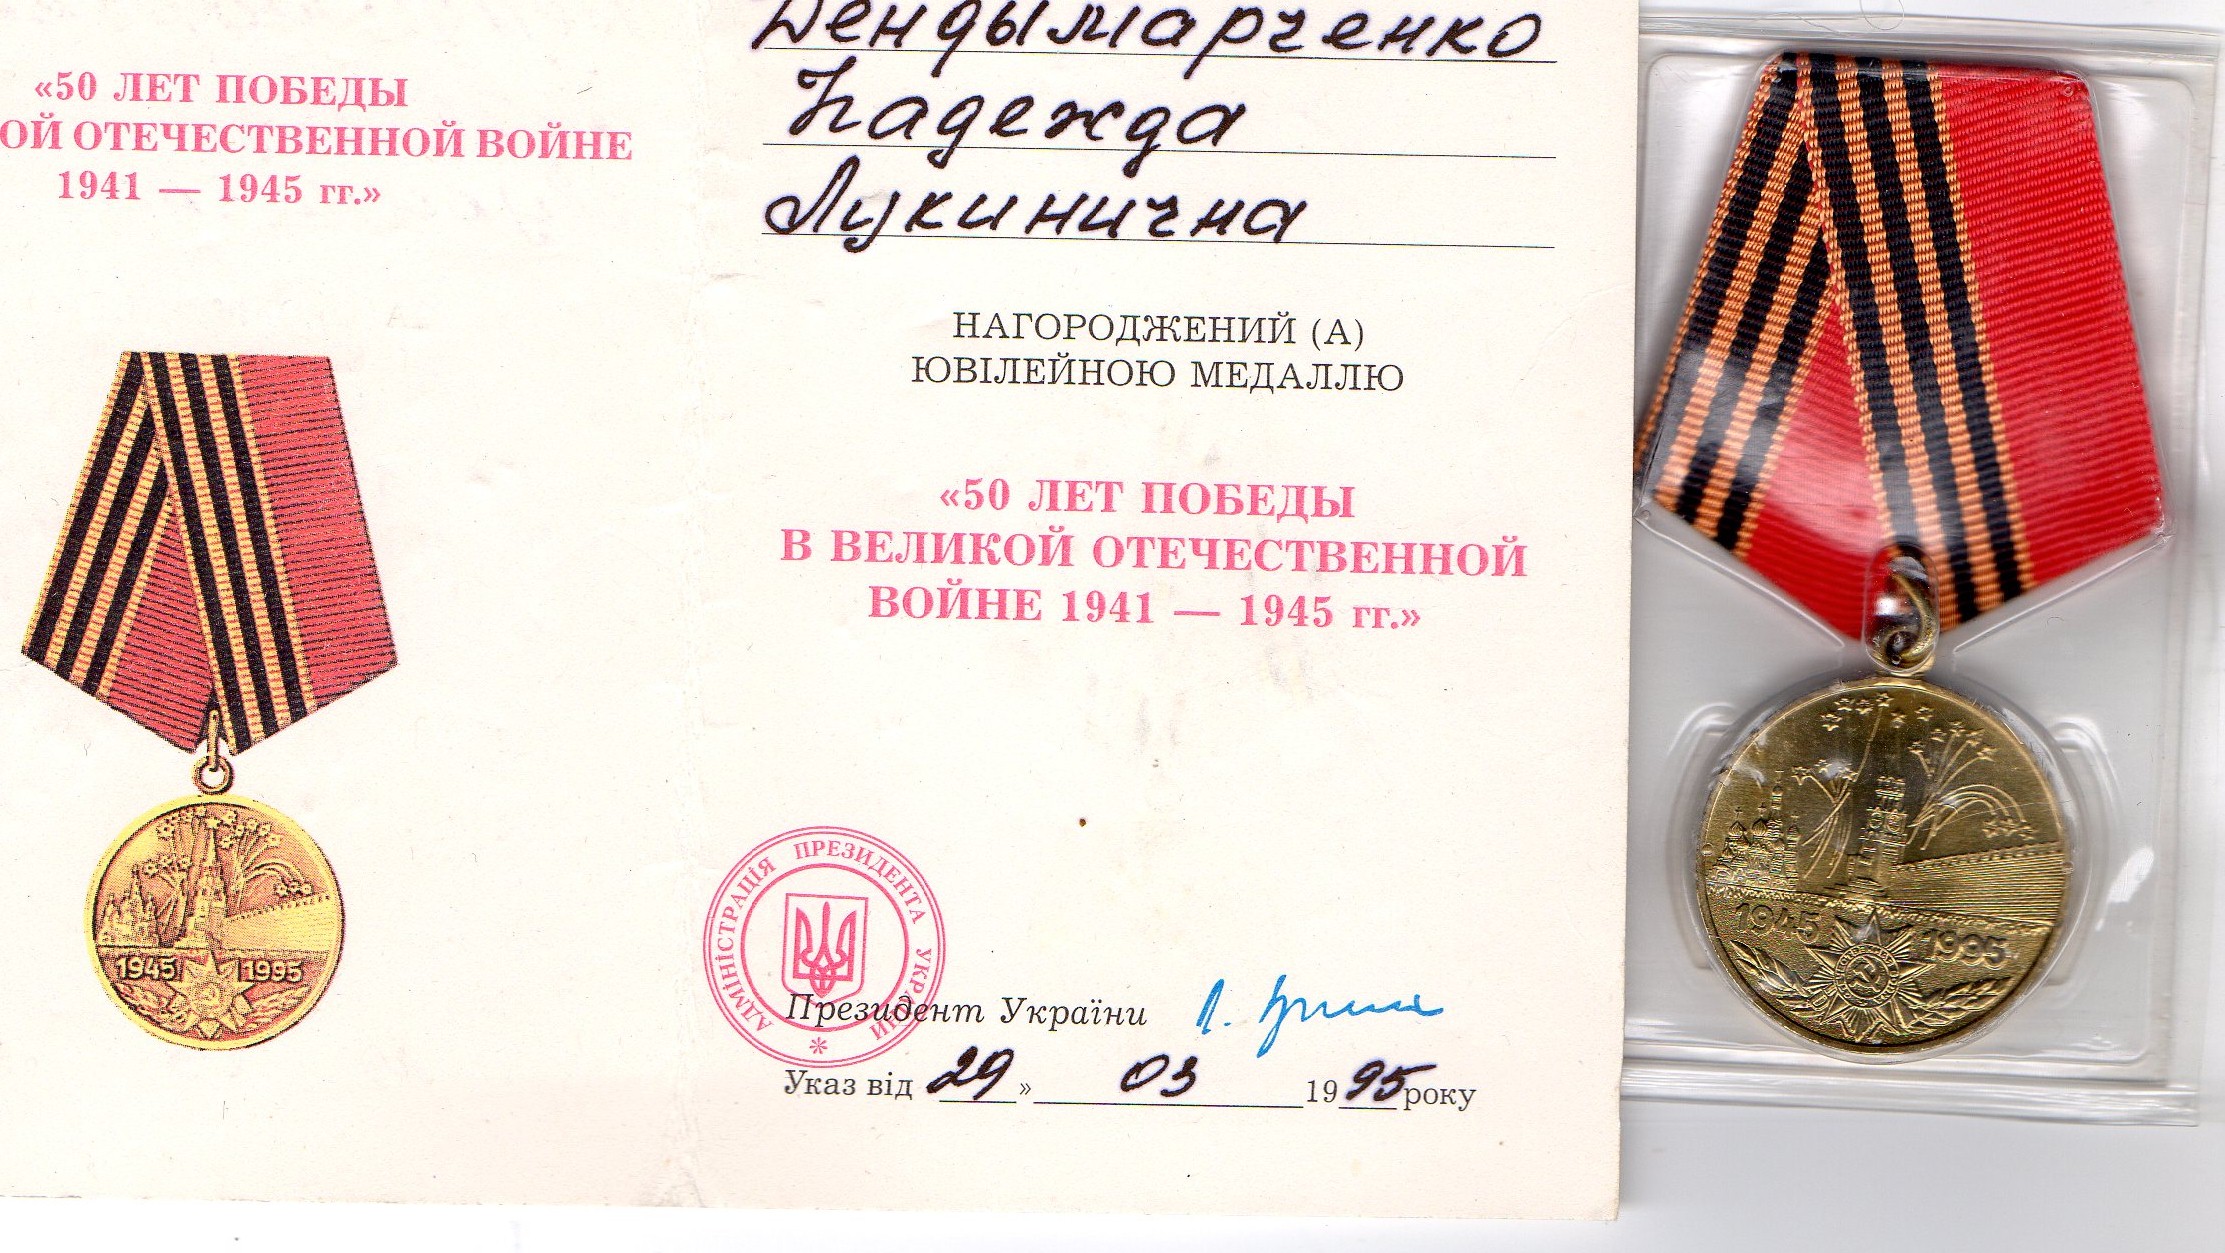 «50 ЛЕТ ПОБЕДЫ
ОЙ ОТЕЧЕСТВЕННОЙ ВОЙНЕ
1941 — 1945 гг.»
1945 1995
Дендымарченко
Надежда
Лукинична
НАГОРОДЖЕНИЙ (А)
ЮВІЛЕЙНОЮ МЕДАЛЛЮ
«50 ЛЕТ ПОБЕДЫ
В ВЕЛИКОЙ ОТЕЧЕСТВЕННОЙ
ВОЙНЕ 1941 — 1945 гг.»
АДМІНІСТРАЦІЯ ПРЕЗИДЕНТА УКРАЇНИ *
Президент України
Указ від 29 » 03 1995 року
1945 1995